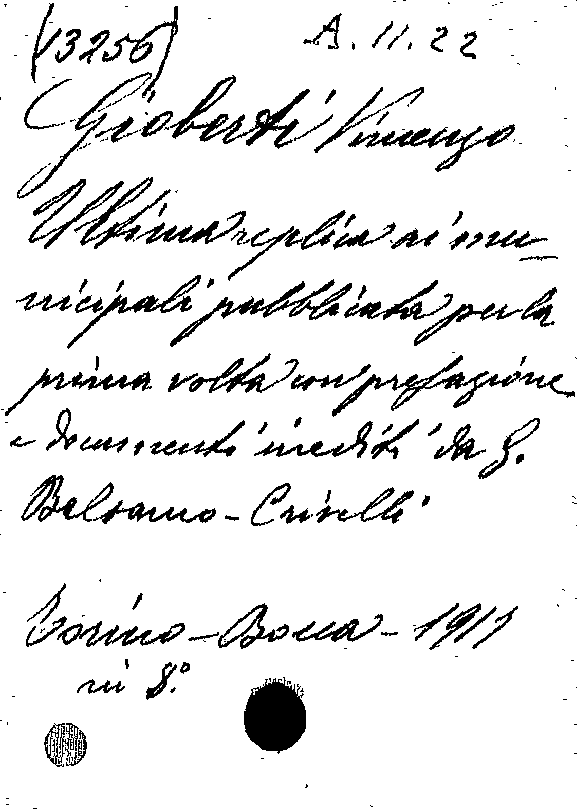 (13256) A. 11. 22
Gioberti Vincenzo
Ultima replica ai mu-
nicipali pubblicata per la
prima volta con prefazione
e documenti inediti da G.
Balsamo-Crivelli
Torino - Bocca - 1917
in 8.°